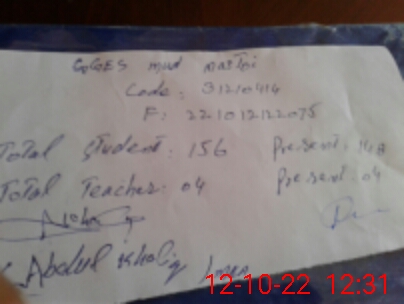 GGES mud mastoi
Code: 31210414
F: 221012122075
Total student: 156 Present: 148
Total Teacher: 04 Present: 04
Abdul Khaliq
12-10-22 12:31